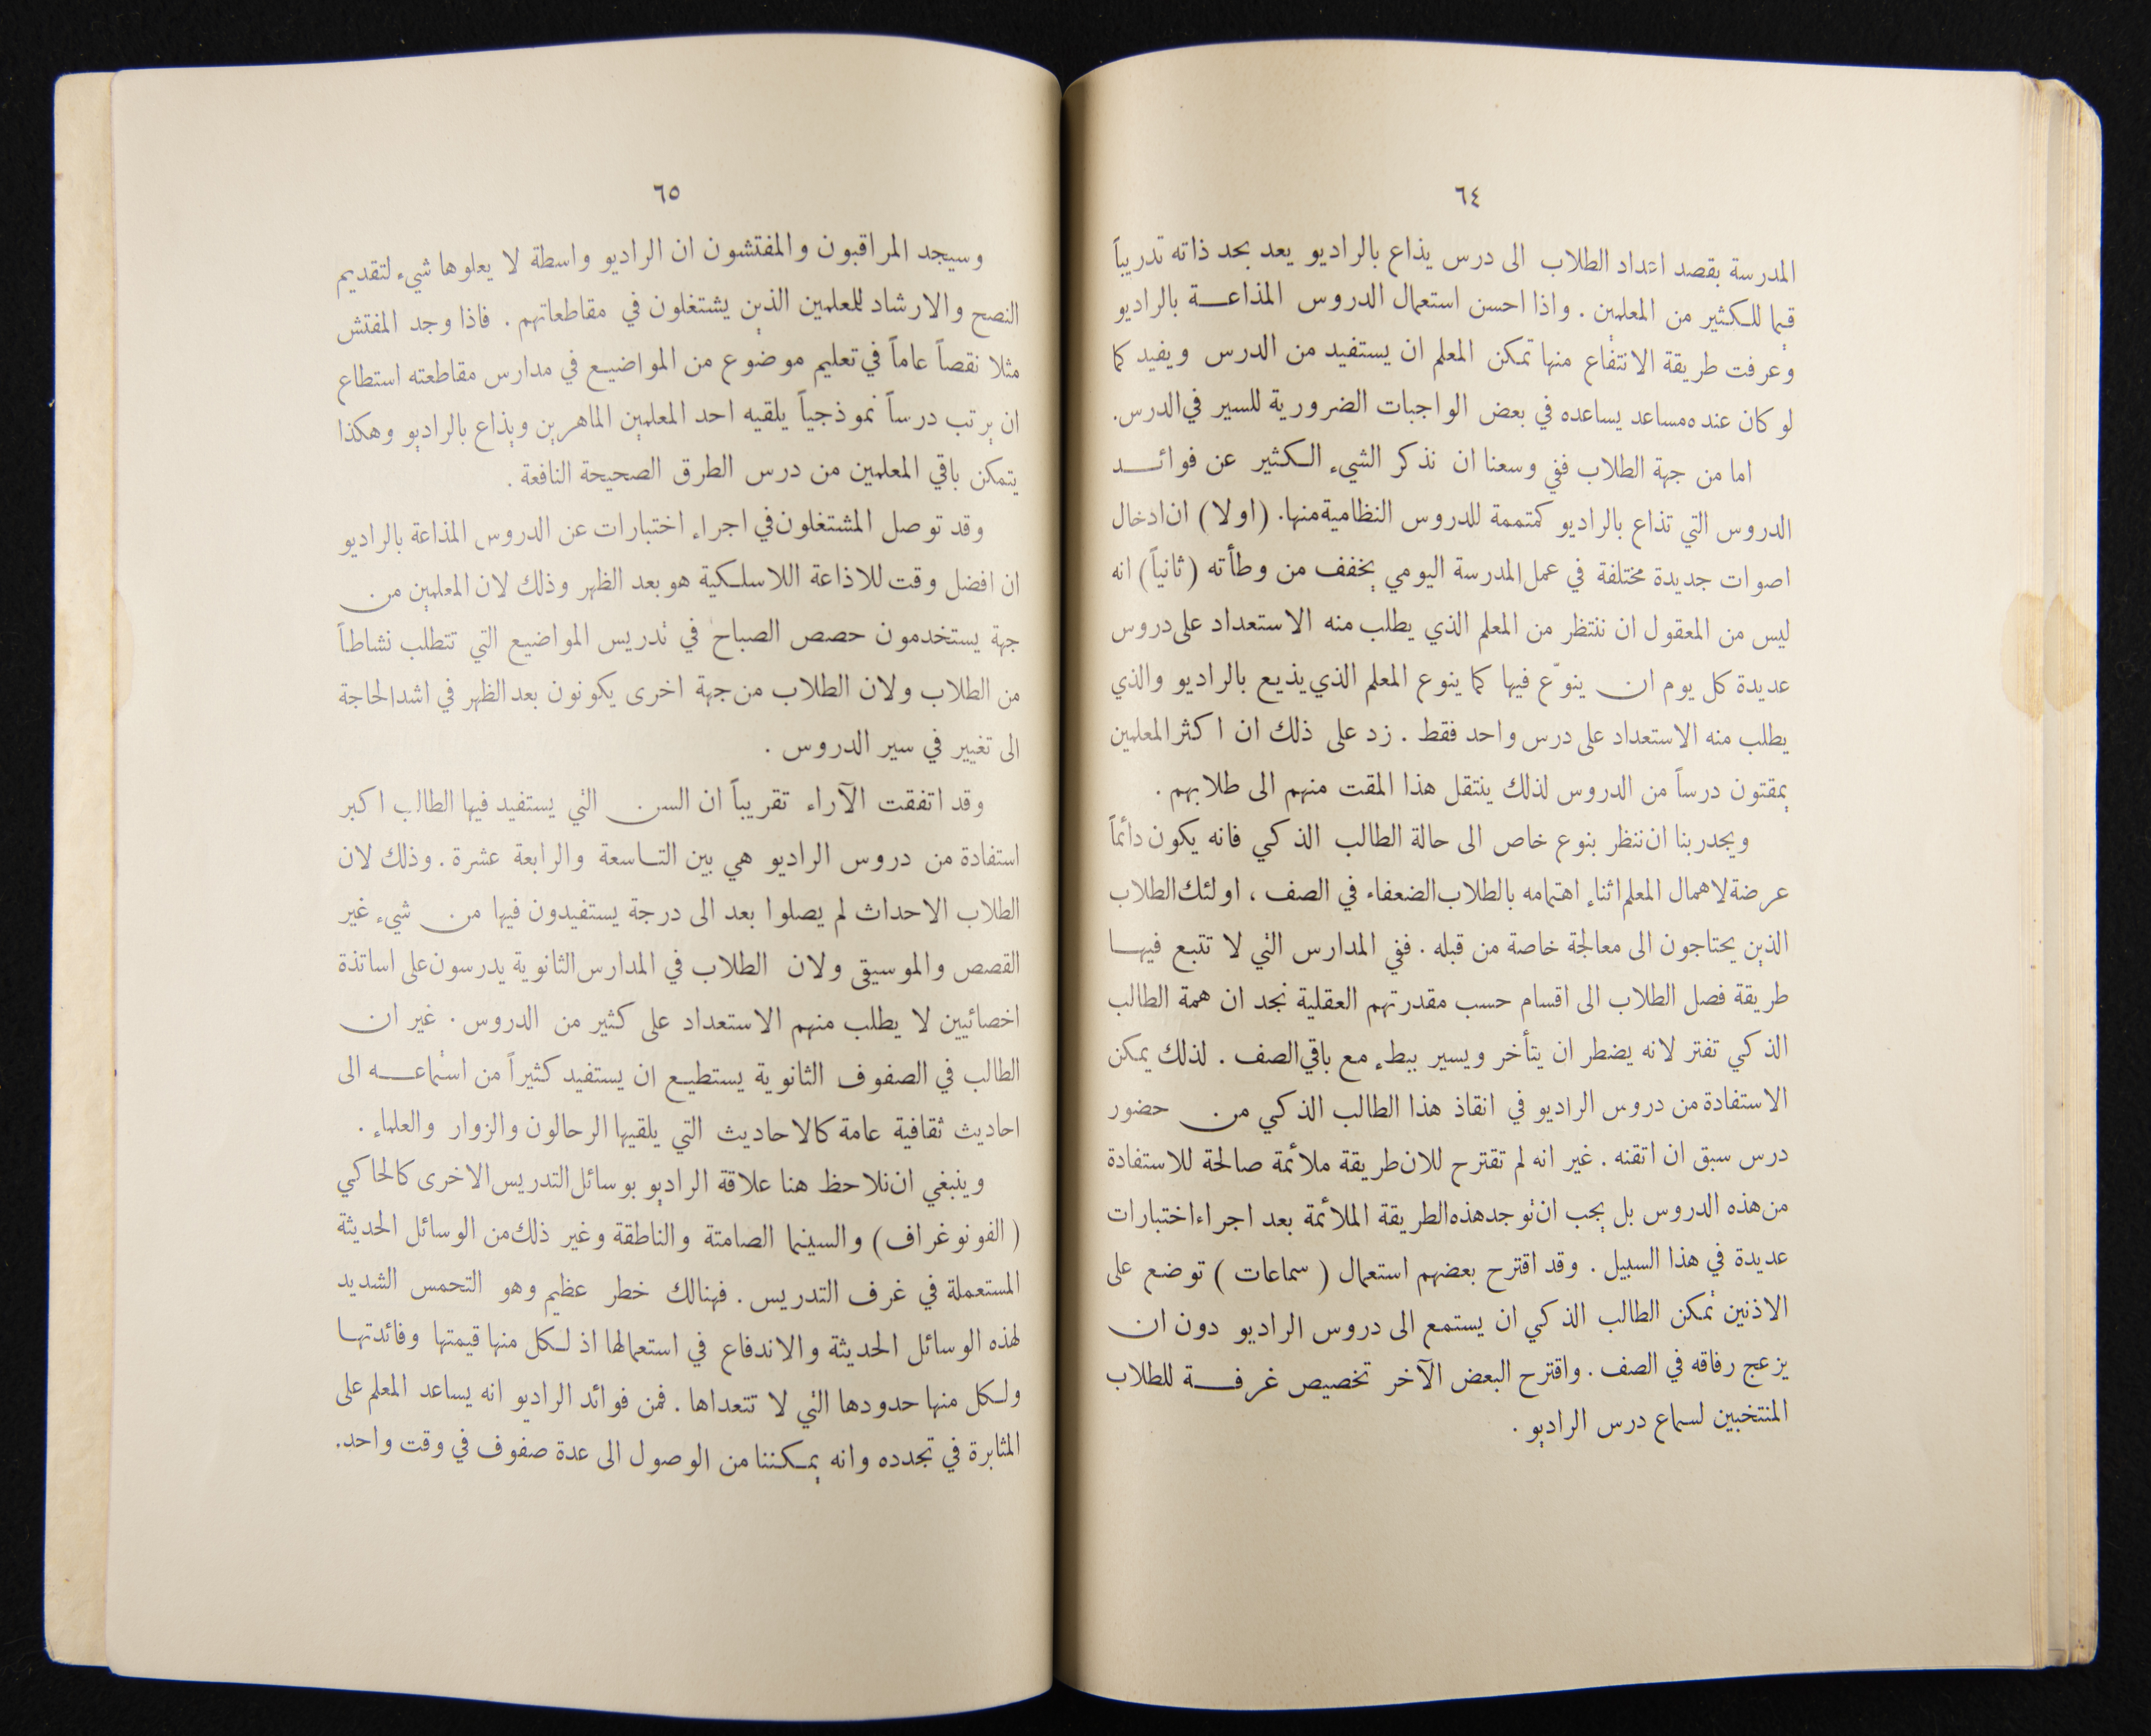 ٦٤
المدرسة بقصد اعداد الطلاب الى درس يذاع بالراديو يعد بحد ذاته تدريباً
قيما للكثير من المعلمين . واذا احسن استعمال الدروس المذاعة بالراديو
وعرفت طريقة الانتفاع منها تمكن المعلم ان يستفيد من الدرس ويفيد كما
لو كان عنده مساعد يساعده في بعض الواجبات الضرورية للسير في الدرس.
اما من جهة الطلاب ففي وسعنا ان نذكر الشيء الكثير عن فوائد
الدروس التي تذاع بالراديو كمتممة للدروس النظامية منها. (اولا) ان ادخال
اصوات جديدة مختلفة في عمل المدرسة اليومي يخفف من وطأته (ثانياً) انه
ليس من المعقول ان ننتظر من المعلم الذي يطلب منه الاستعداد على دروس
عديدة كل يوم ان ينوّع فيها كما ينوع المعلم الذي يذيع بالراديو والذي
يطلب منه الاستعداد على درس واحد فقط . زد على ذلك ان اكثر المعلمين
يمقتون درساً من الدروس لذلك ينتقل هذا المقت منهم الى طلابهم .
ويجدر بنا ان ننظر بنوع خاص الى حالة الطالب الذكي فانه يكون دائماً
عرضة لاهمال المعلم اثناء اهتمامه بالطلاب الضعفاء في الصف ، اولئك الطلاب
الذين يحتاجون الى معالجة خاصة من قبله . ففي المدارس التي لا تتبع فيها
طريقة فصل الطلاب الى اقسام حسب مقدرتهم العقلية نجد ان همة الطالب
الذكي تفتر لانه يضطر ان يتأخر ويسير ببطء مع باقي الصف . لذلك يمكن
الاستفادة من دروس الراديو في انقاذ هذا الطالب الذكي من حضور
درس سبق ان اتقنه . غير انه لم تقترح للان طريقة ملائمة صالحة للاستفادة
من هذه الدروس بل يجب ان توجد هذه الطريقة الملائمة بعد اجراء اختبارات
عديدة في هذا السبيل . وقد اقترح بعضهم استعمال ( سماعات ) توضع على
الاذنين تمكن الطالب الذكي ان يستمع الى دروس الراديو دون ان
يزعج رفاقه في الصف . واقترح البعض الآخر تخصيص غرفة للطلاب
المنتخبين لسماع درس الراديو .
٦٥
وسيجد المراقبون والمفتشون ان الراديو واسطة لا يعلوها شيء لتقديم
النصح والارشاد للمعلمين الذين يشتغلون في مقاطعاتهم . فاذا وجد المفتش
مثلا نقصاً عاماً في تعليم موضوع من المواضيع في مدارس مقاطعته استطاع
ان يرتب درساً نموذجياً يلقيه احد المعلمين الماهرين ويذاع بالراديو وهكذا
يتمكن باقي المعلمين من درس الطرق الصحيحة النافعة .
وقد توصل المشتغلون في اجراء اختبارات عن الدروس المذاعة بالراديو
ان افضل وقت للاذاعة اللاسلكية هو بعد الظهر وذلك لان المعلمين من
جهة يستخدمون حصص الصباح في تدريس المواضيع التي تتطلب نشاطاً
من الطلاب ولان الطلاب من جهة اخرى يكونون بعد الظهر في اشد الحاجة
الى تغيير في سير الدروس .
وقد اتفقت الآراء تقريباً ان السن التي يستفيد فيها الطالب اكبر
استفادة من دروس الراديو هي بين التاسعة والرابعة عشرة . وذلك لان
الطلاب الاحداث لم يصلوا بعد الى درجة يستفيدون فيها من شيء غير
القصص والموسيقى ولان الطلاب في المدارس الثانوية يدرسون على اساتذة
اخصائيين لا يطلب منهم الاستعداد على كثير من الدروس . غير ان
الطالب في الصفوف الثانوية يستطيع ان يستفيد كثيراً من استماعه الى
احاديث ثقافية عامة كالاحاديث التي يلقيها الرحالون والزوار والعلماء .
وينبغي ان نلاحظ هنا علاقة الراديو بوسائل التدريس الاخرى كالحاكي
( الفونوغراف ) والسينما الصامتة والناطقة وغير ذلك من الوسائل الحديثة
المستعملة في غرف التدريس . فهنالك خطر عظيم وهو التحمس الشديد
لهذه الوسائل الحديثة والاندفاع في استعمالها اذ لكل منها قيمتها وفائدتها
ولكل منها حدودها التي لا تتعداها . فمن فوائد الراديو انه يساعد المعلم على
المثابرة في تجدده وانه يمكننا من الوصول الى عدة صفوف في وقت واحد.